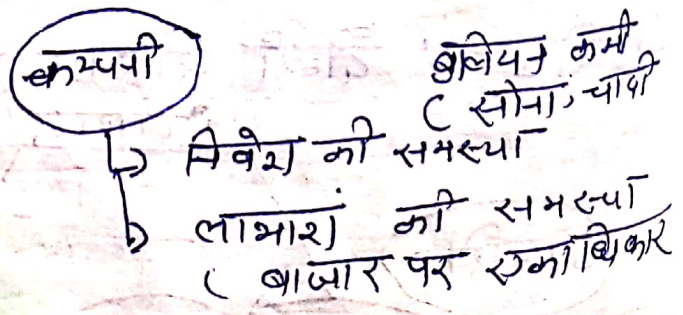 कम्पनी
बुलियन कमी
( सोना, चादी
निवेश की समस्या
लाभाशं की समस्या
( बाजार पर एकाधिकार